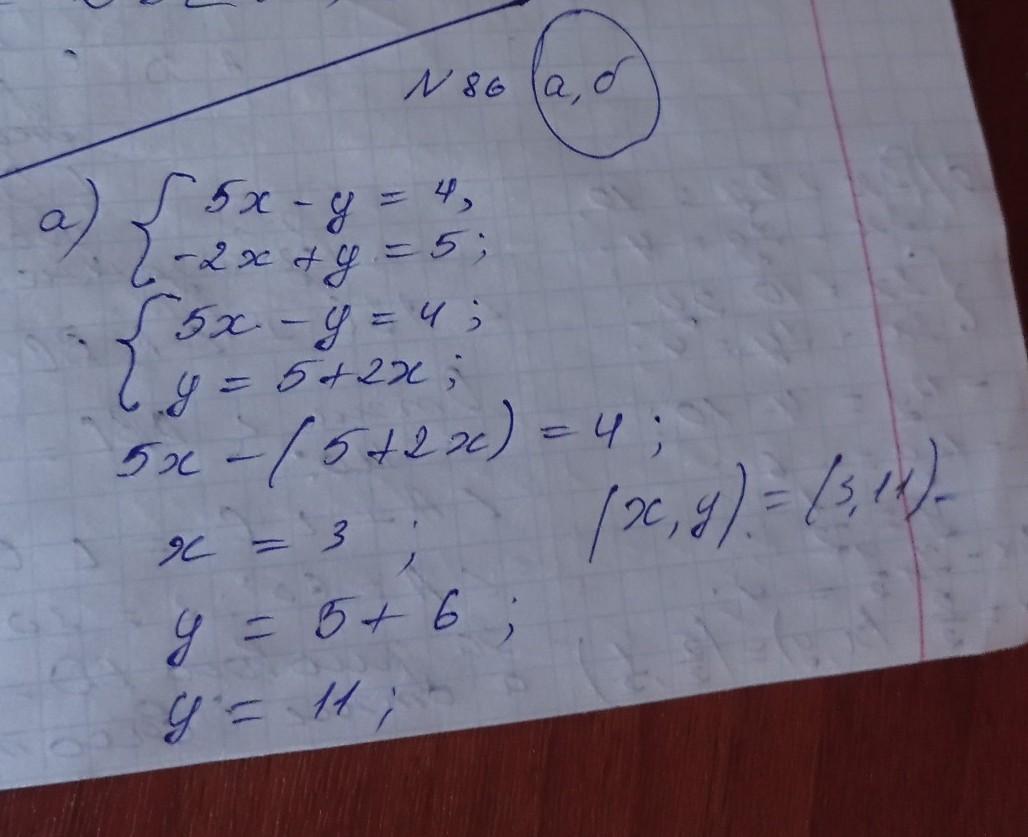 N 86 а, б
а) { 5x - y = 4,
-2x + y = 5;
{ 5x - y = 4;
y = 5 + 2x;
5x - (5 + 2x) = 4;
x = 3;
(x, y) = (3, 11).
y = 5 + 6;
y = 11;